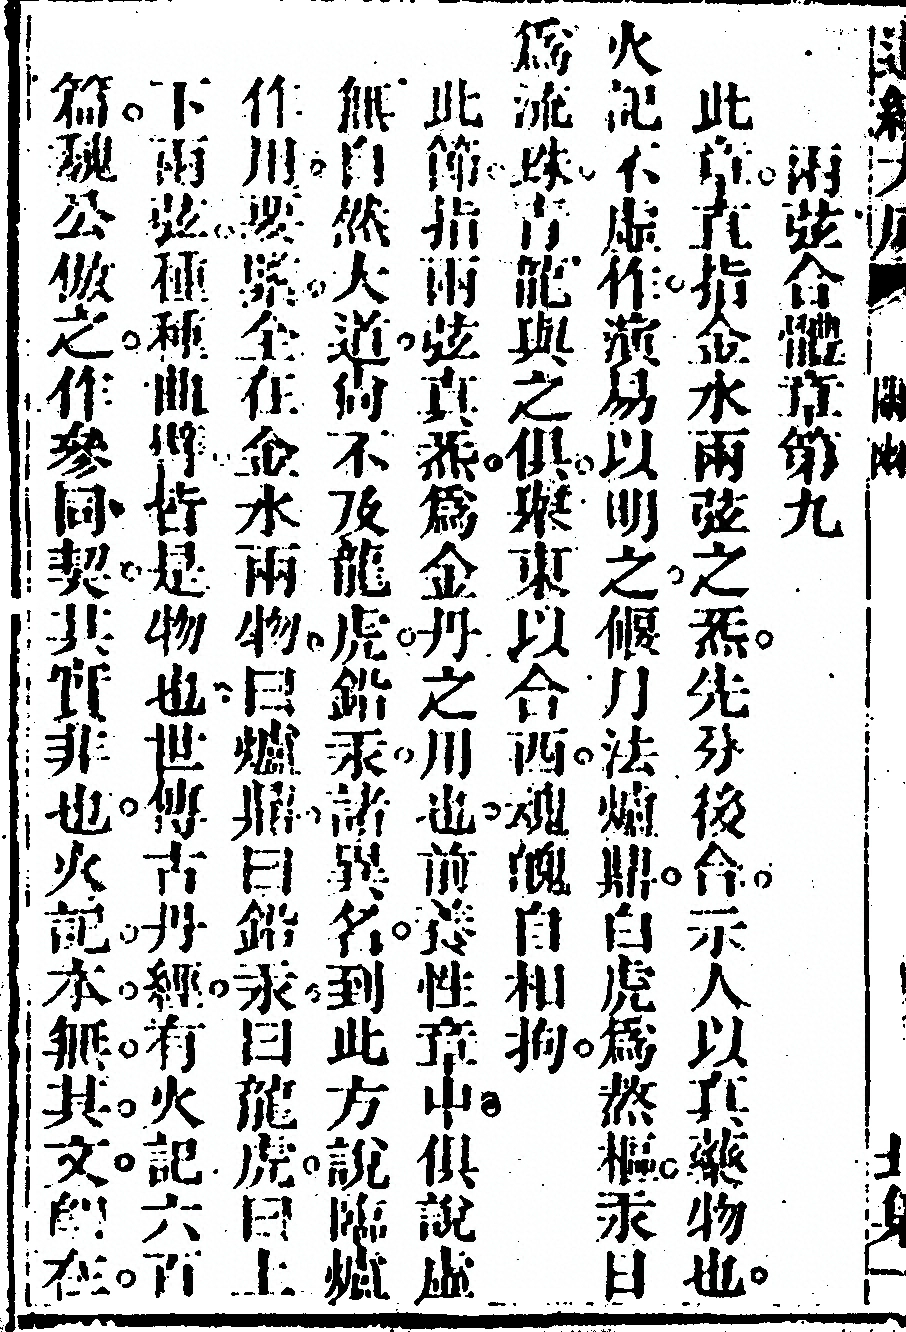 兩弦合體章第九
此章直指金水兩弦之炁先分後合示人以真藥物也
火記不虛作演易以明之偃月法爐鼎白虎爲熬樞汞日
爲流珠青龍與之俱舉東以合西魂魄自相拘
此節指兩弦真炁爲金丹之用也前養性章中俱說虛
無自然大道尚不及龍虎鉛汞諸異名到此方說臨爐
作用要緊全在金水兩物曰爐鼎曰鉛汞曰龍虎曰上
下兩弦種種曲譬皆是物也世傳古丹經有火記六百
篇魏公倣之作參同契其實非也火記本無其文即在